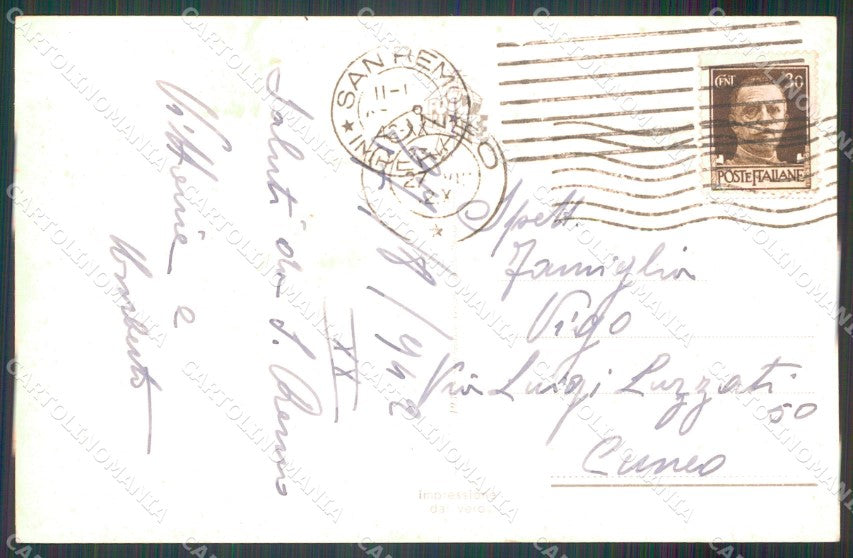 Spett.
Famiglia
Vigo
Via Luigi Luzzati
50
Cuneo
Saluti da S. Remo
Vittorio e
Umberto
8/942
XX
SAN REMO
CENT 30
POSTE ITALIANE
impressione
dal vero
CARTOLINOMANIA